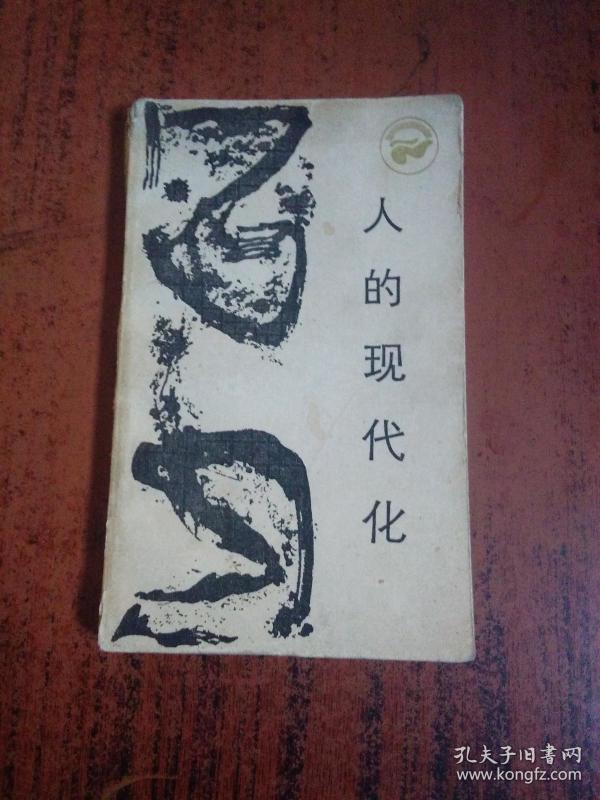 人的现代化
孔夫子旧书网
www.kongfz.com